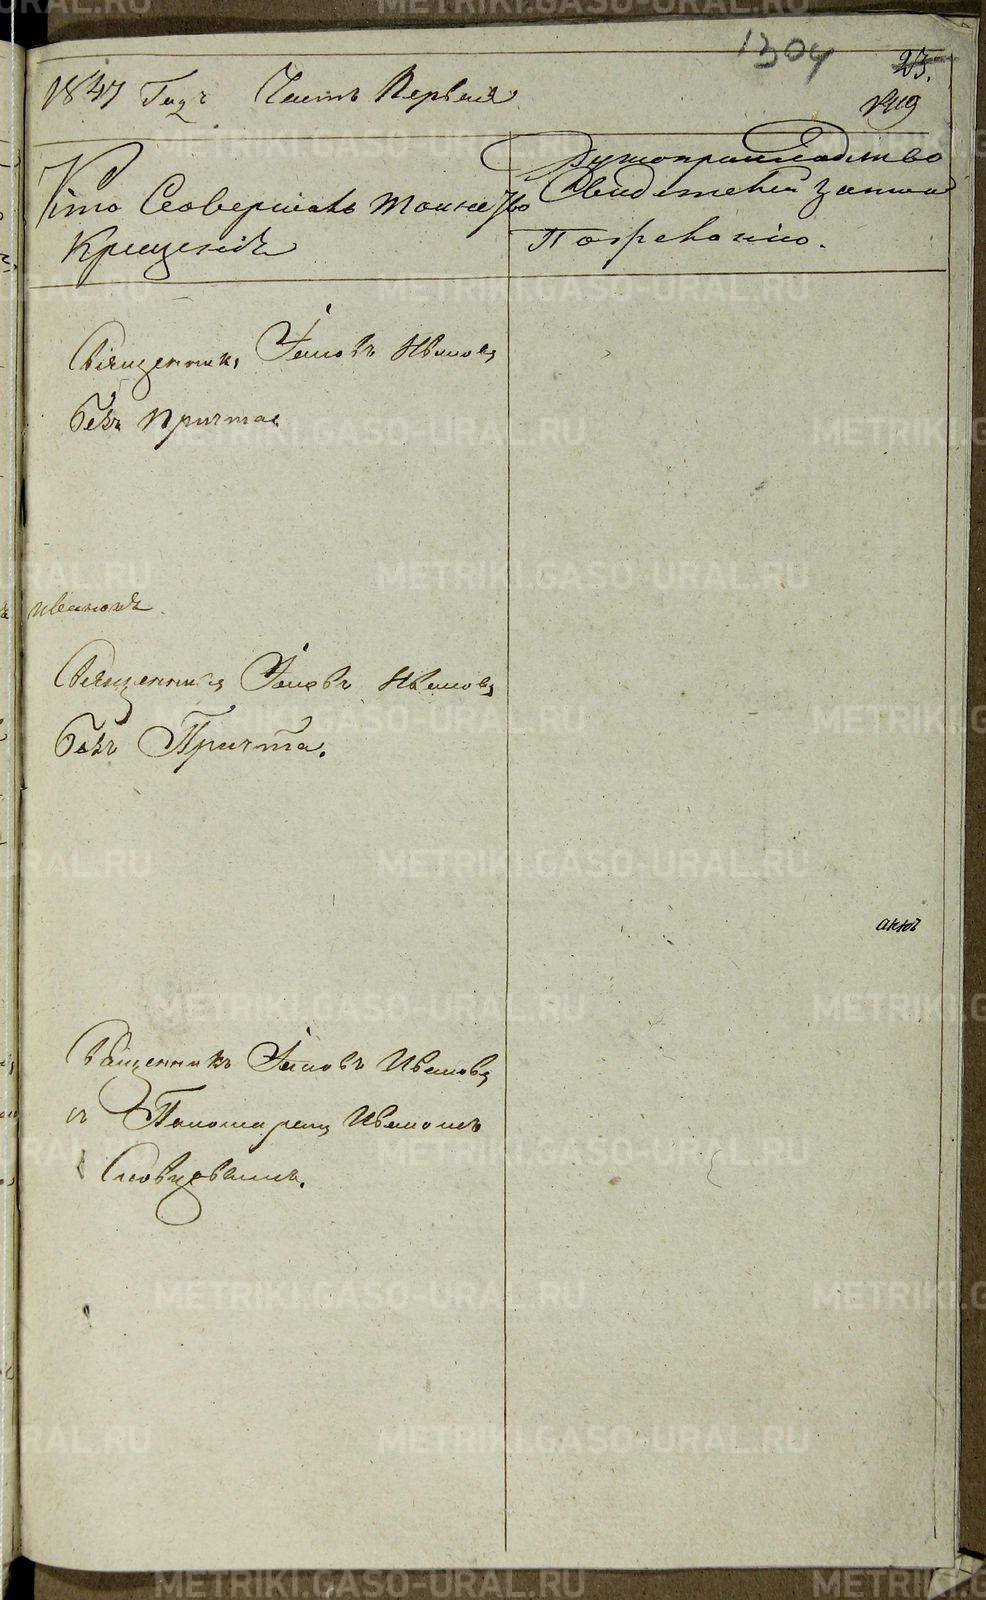 1304
23.
1847 Годъ Часть Первая
Кто Совершалъ таинство
Крещенія
Рукоприкладство
Свидетелей записи
По
Священникъ Іаковъ Иванов
безъ причта
Иваномъ
Священникъ Іаковъ Иванов
безъ Причта.
акют
Священникъ Іаковъ Иванов
съ Пономаремъ Иваномъ
Словцовымъ.
METRIKI.GASO-URAL.RU